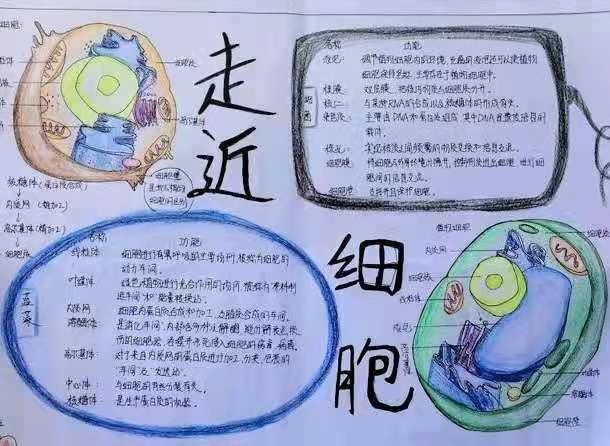 走近
细胞
细胞:
细胞质
高尔基体
核糖体(蛋白质合成)
内质网(粗加工)
高尔基体(精加工)
细胞膜
名称 功能
液泡: 调节植物细胞内的环境,充盈的液泡还可以使植物
细胞保持坚挺,主要存在于植物细胞中。
核膜: 双层膜,把核内物质与细胞质分开。
核仁: 与某种RNA的合成以及核糖体的形成有关。
染色质: 主要由DNA和蛋白质组成,其中DNA是遗传信息的
载体。
核孔: 实现核质之间频繁的物质交换和信息交流。
细胞膜: 将细胞与外界环境分隔开,控制物质进出细胞,进行细
胞间的信息交流。
细胞壁: 支持并且保护细胞。
名称 功能
线粒体: 细胞进行有氧呼吸的主要场所,被称为细胞的
动力车间。
叶绿体: 绿色植物进行光合作用的场所,被称为“养料制
造车间”和“能量转换站”。
内质网 细胞内蛋白质合成和加工,及脂质合成的车间。
溶酶体: 是消化车间,内部含多种水解酶,能分解衰老、损
伤的细胞器,吞噬并杀死侵入细胞的病毒、病菌。
高尔基体: 对于来自内质网的蛋白质进行加工、分类、包装的
“车间”及“发送站”。
中心体: 与细胞的有丝分裂有关。
核糖体: 是生产蛋白质的机器。
植物细胞
细胞膜
内质网
细胞质
线粒体
液泡
叶绿体
细胞壁